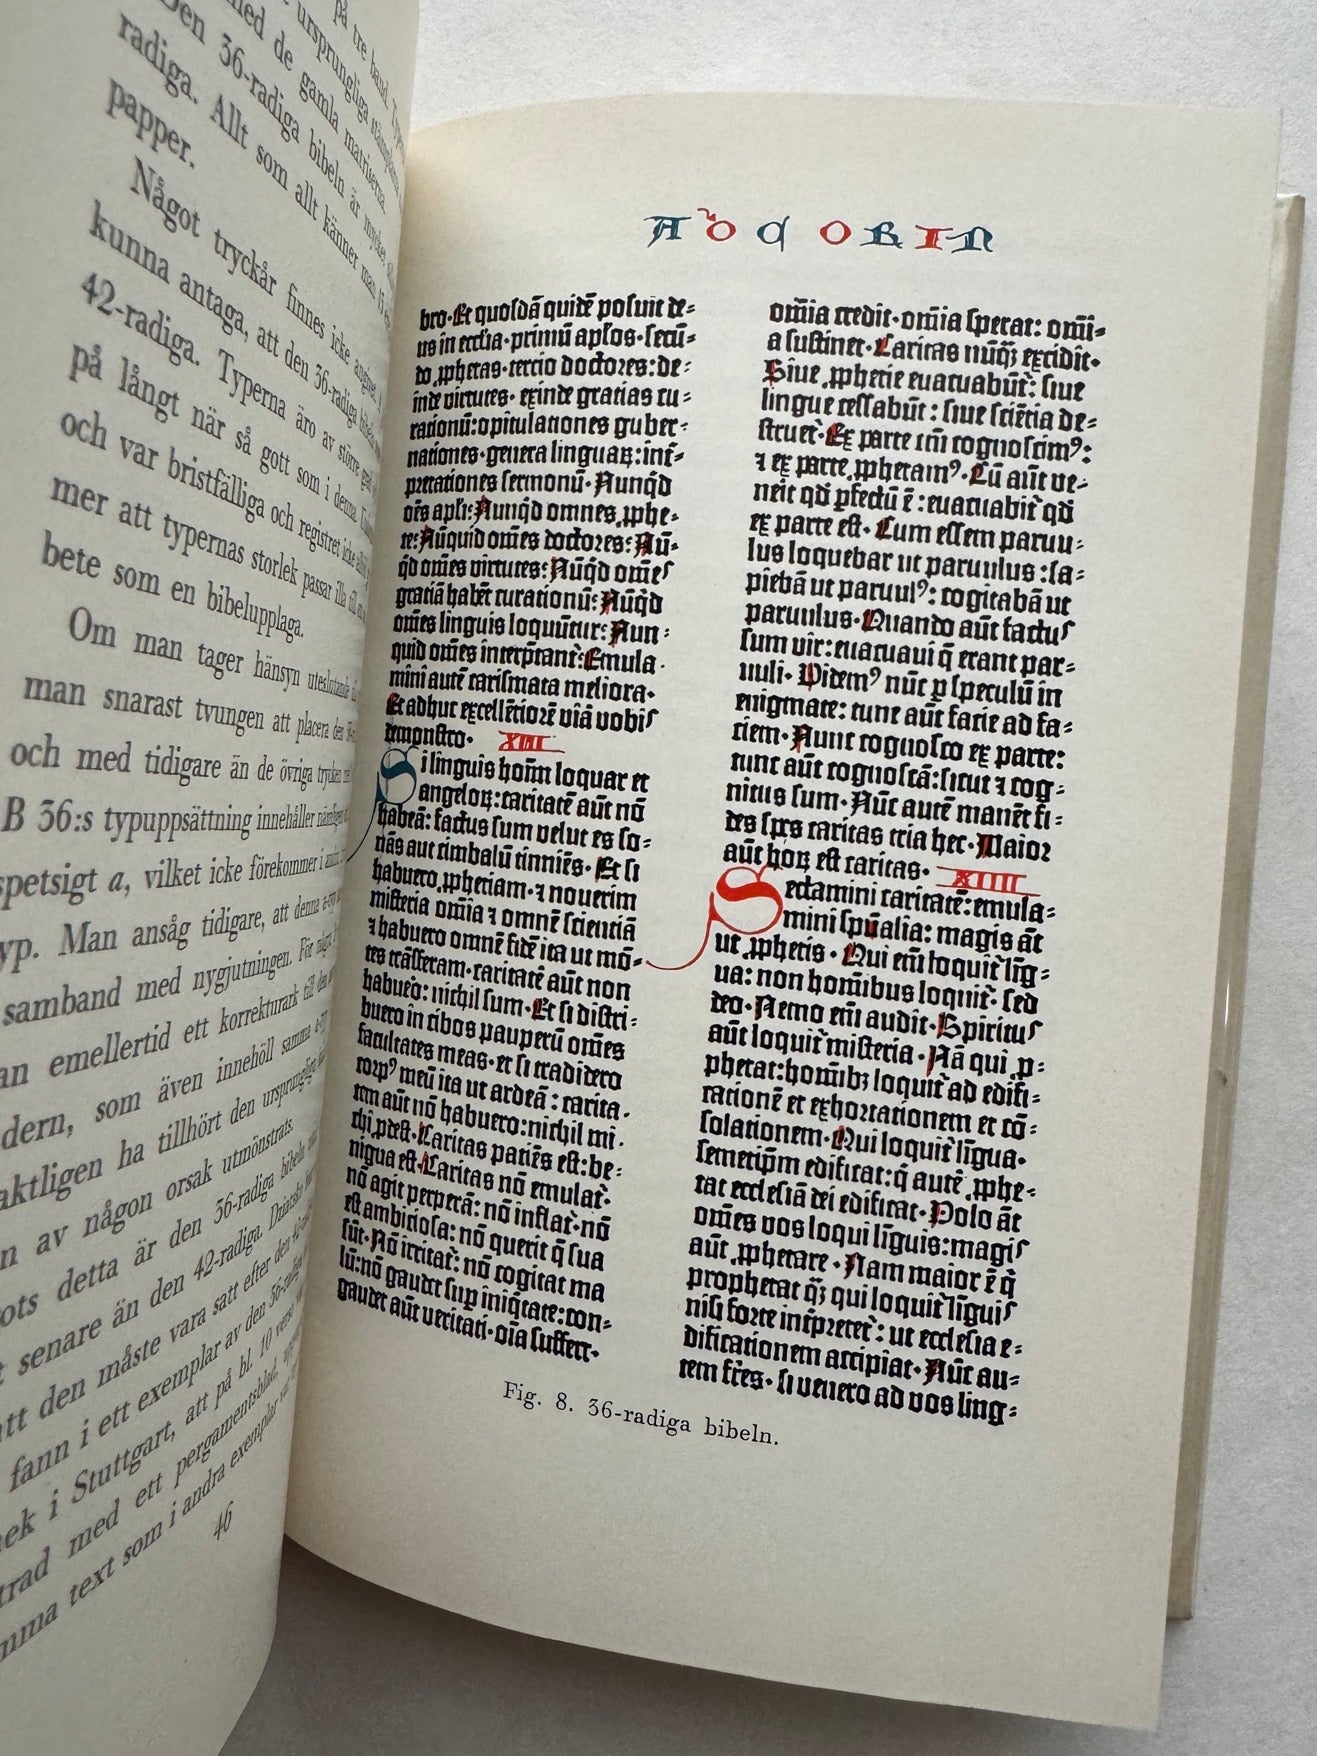 på tre band. Typerna
ursprungliga stämplarna
med de gamla matriserna.
Den 36-radiga bibeln är mycket
radiga. Allt som allt känner man
papper.
Något tryckår finnes icke angivet.
kunna antaga, att den 36-radiga bibeln
42-radiga. Typerna äro av större grad
på långt när så gott som i denna.
och var bristfälliga och registret icke
mer att typernas storlek passar illa till
bete som en bibelupplaga.
Om man tager hänsyn uteslutande
man snarast tvungen att placera den
och med tidigare än de övriga trycken
B 36:s typuppsättning innehåller
spetsigt a, vilket icke förekommer i
yp. Man ansåg tidigare, att denna a-typ
samband med nygjutningen. För
an emellertid ett korrekturark till den
dern, som även innehöll samma a-typ
aktligen ha tillhört den ursprungliga
n av någon orsak utmönstrats.
ots detta är den 36-radiga bibeln
t senare än den 42-radiga. Dziatzko
att den måste vara satt efter den
fann i ett exemplar av den 36-radiga
ek i Stuttgart, att på bl. 10 verso
trad med ett pergamentsblad,
mma text som i andra exemplar var
46
A D C O R I N
bro · Et quosdā quidē posuit de⸗
us in ecclīa · primū aplos · secū⸗
do ꝓphetas · tercio doctores : de⸗
inde virtutes · exinde gratias cu⸗
rationū : opitulationes guber⸗
nationes · genera linguaꝝ : inť⸗
pretationes sermonū · Nunq̄d
oēs apli : Nunq̄d omnes ꝓphe⸗
te : Nūquid om̄es doctores : Nū⸗
q̄d om̄es virtutes : Nūq̄d om̄es
gratiā habēt curationū : Nūq̄d
om̄es linguis loquūtur : Nun⸗
quid om̄es interp̄tant᷑ : Emula⸗
mini autē carismata meliora ·
Et adhuc excellētiorē viā vobis
demonstro · XIII
Si linguis hoīm loquar et
angeloꝝ : caritatē aūt nō
habeā : factus sum velut es so⸗
nās aut cimbalū tinniēs · Et si
habuero ꝓphetiam · ⁊ noverim
misteria om̄ia ⁊ omnē scienciā
⁊ habuero omnē fidē ita ut mō⸗
tes trāsferam · caritatē aūt non
habuero : nichil sum · Et si distri⸗
buero in cibos pauperū om̄es
facultates meas · et si tradidero
corpꝰ meū ita ut ardeā : carita⸗
tem aūt nō habuero : nichil mi⸗
chi ꝓdest · Caritas patiēs est : be⸗
nigna est · Caritas nō emulat᷑ ·
nō agit perperā : nō inflat᷑ · nō
est ambiciosa : nō querit q̄ sua
sūt · Nō irritat᷑ : nō cogitat ma
lū : nō gaudet sup iniq̄tate : con⸗
gaudet aūt veritati · oīa suffert ·
om̄ia credit · om̄ia sperat : om̄i⸗
a sustinet · Caritas nūq̄ꝫ excidit ·
Siue ꝓphetie euacuabūt᷑ : siue
lingue cessabūt : siue sciētia de⸗
struet᷑ · Ex parte em̄ cognoscimꝰ :
⁊ ex parte ꝓphetamꝰ · Cū aūt ve⸗
neit qd̄ ꝑfectū ē : euacuabit᷑ qd̄
ex parte est · Cum essem paruu⸗
lus loquebar ut paruulus : sa⸗
piebā ut paruulꝰ : cogitabā ut
paruulus · Quando aūt factus
sum vir : euacuaui q̄ erant par⸗
uuli · Videmꝰ nūc ꝑ speculū in
enigmate : tunc aūt facie ad fa⸗
ciem · Nunc cognosco ex parte :
tunc aūt cognoscā : sicut ⁊ cog⸗
nitus sum · Nūc autē manēt fi⸗
des sp̄s caritas tria hec · Maior
aūt hoꝝ est caritas · XIIII
Sectamini caritatē : emula⸗
mini spūalia : magis āt
ut ꝓphetis · Qui em̄ loquit᷑ līg⸗
ua : non hom̄ibus loquit᷑ · sed
deo · Nemo em̄ audit · Spiritus
aūt loquit᷑ misteria · Nā qui ꝓ⸗
phetat : hom̄ibꝫ loquit᷑ ad edifi⸗
cationē et exhortationem et cō⸗
solationem · Qui loquit᷑ līgua ·
semetip̄m edificat : q̄ autē ꝓphe⸗
tat ecclesiā dei edificat · Volo āt
om̄es vos loqui līguis : magis
aūt ꝓphetare · Nam maior ē q̄
prophetat q̄ꝫ qui loquit᷑ līguis
nisi forte inťpretet᷑ : ut ecclesia e⸗
dificationem accipiat · Nūc au⸗
tem fr̄es · si venero ad vos ling⸗
Fig. 8. 36-radiga bibeln.